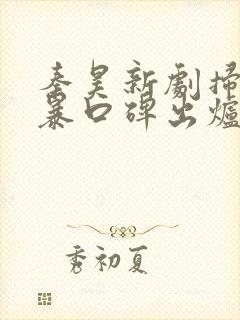 秦昊新劇掃
暴口碑出爐
秀初夏